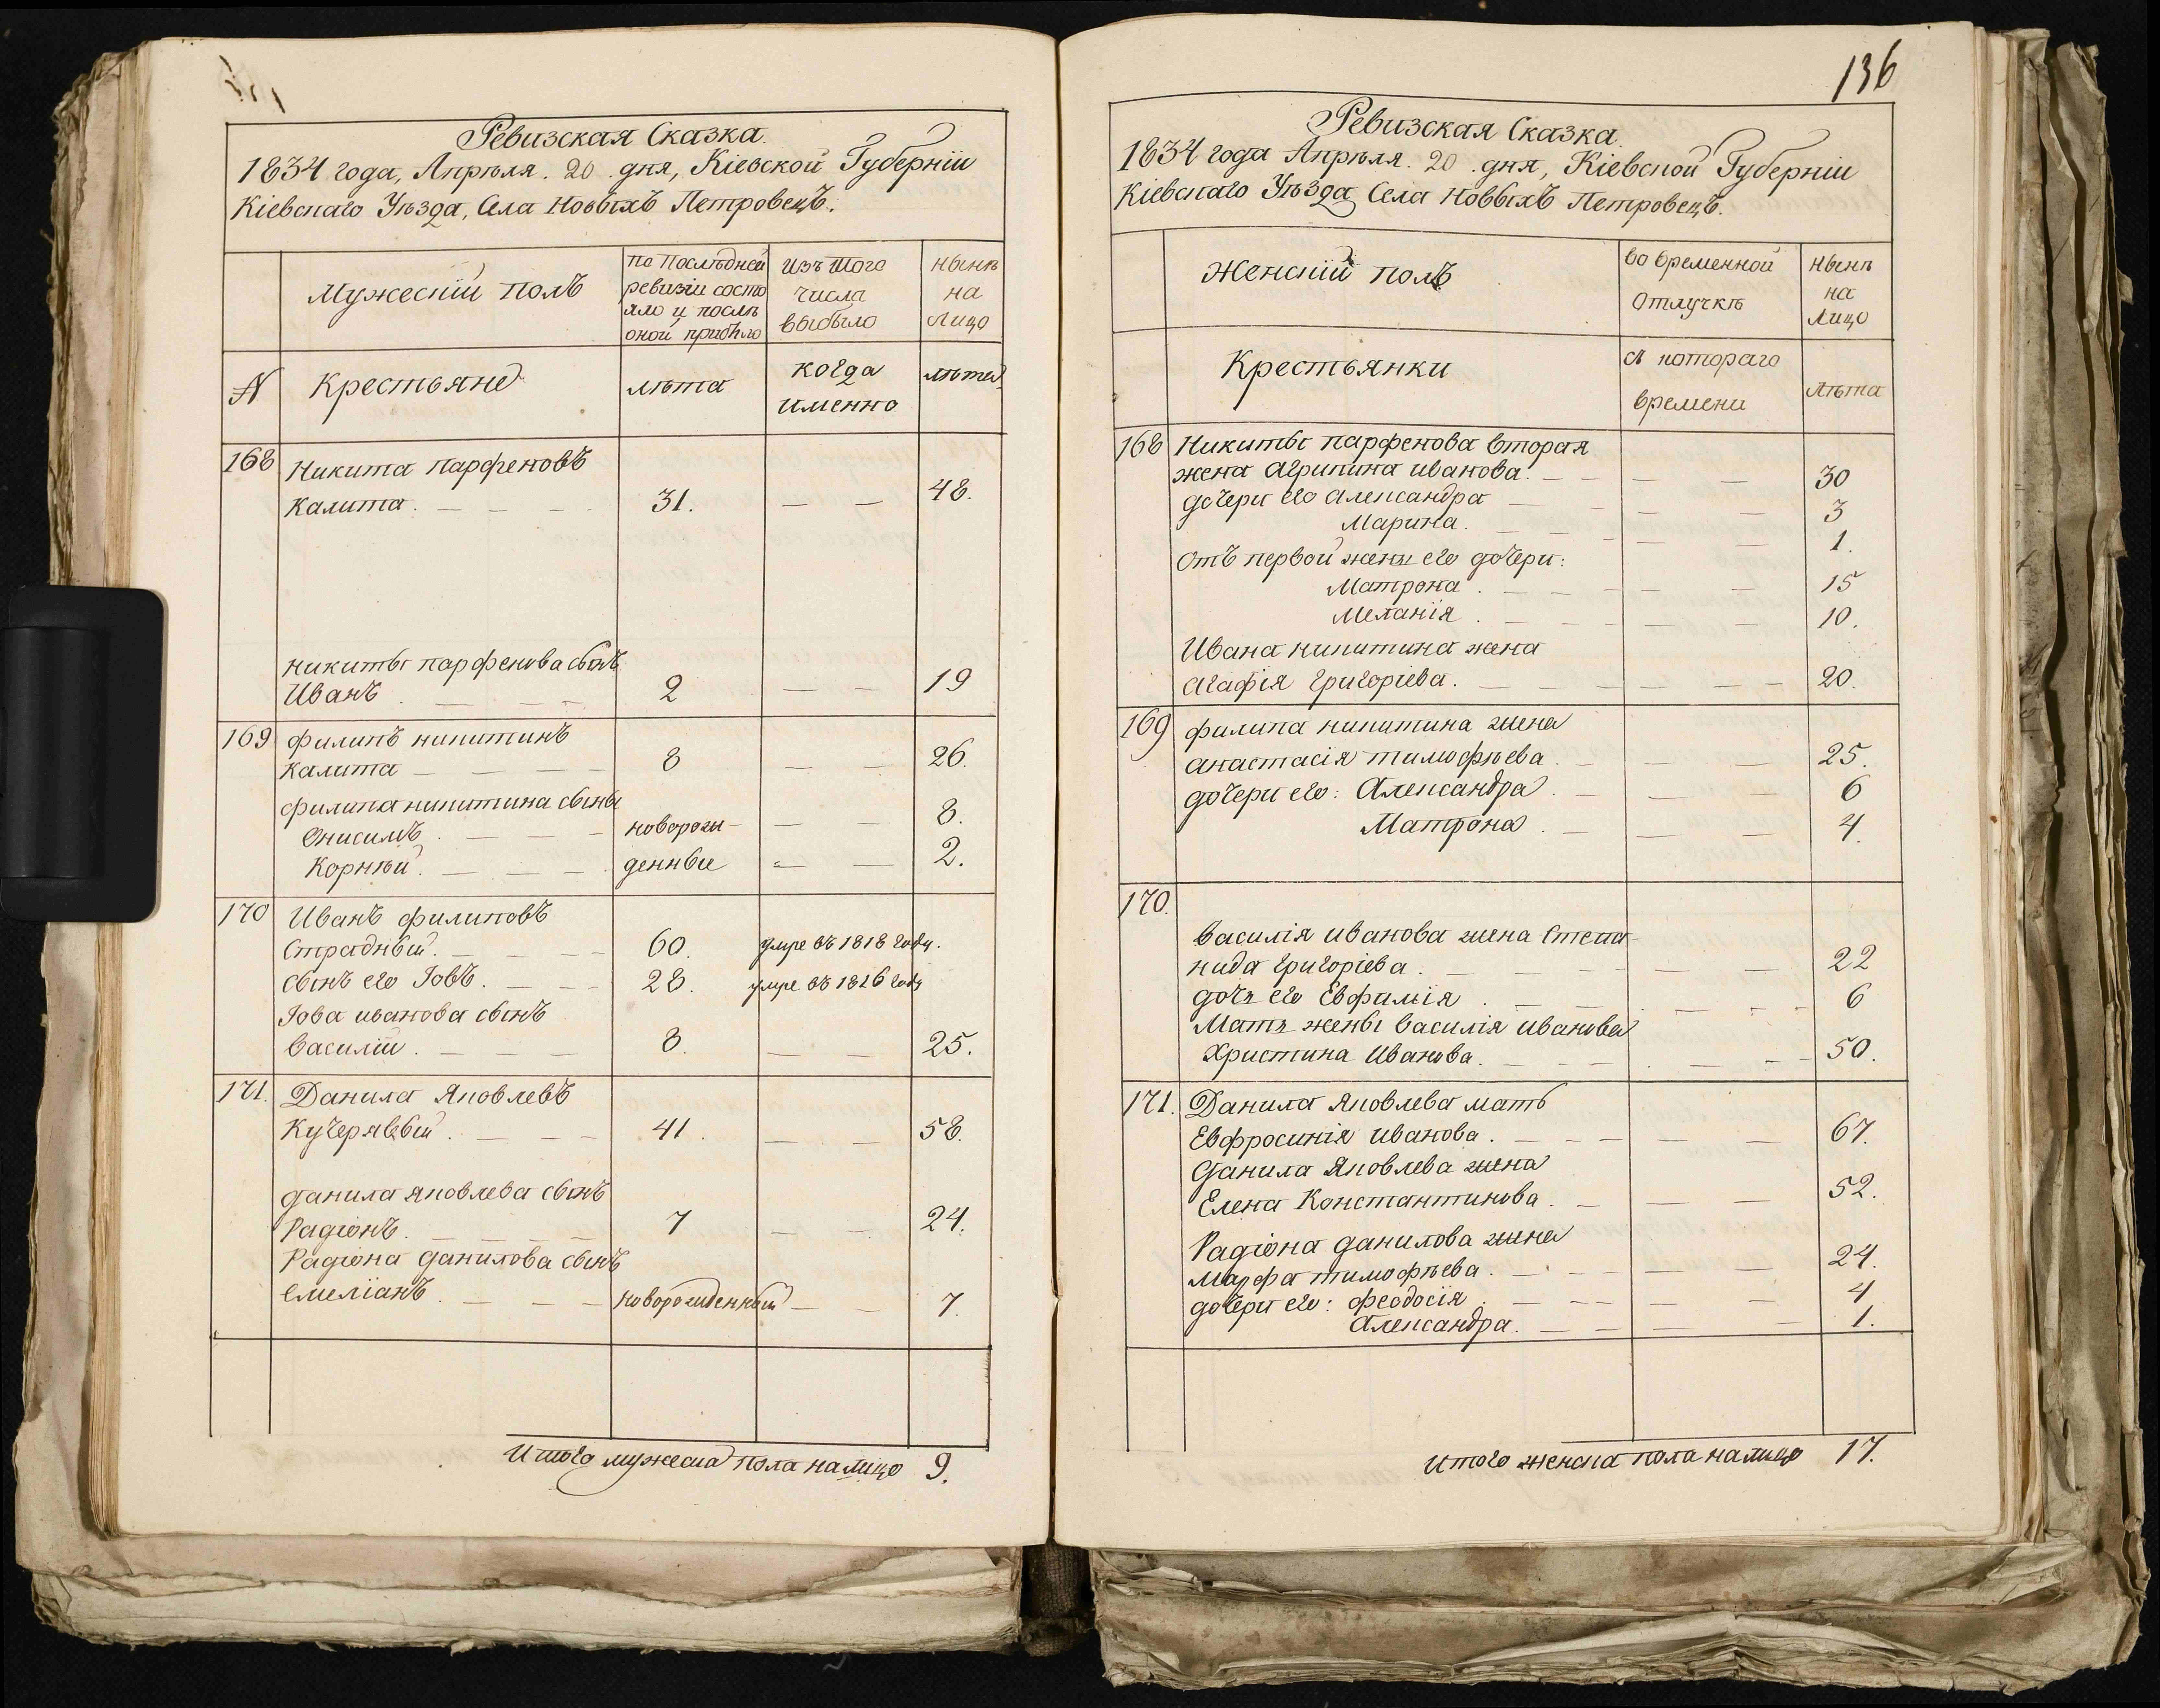 Ревизская Сказка.
1834 года, Апрѣля. 20 . дня, Кіевской Губерніи
Кіевскаго Уѣзда, Села Новыхъ Петровецъ.
Мужескій полъ
по Послѣдней
ревизіи состо
яло и послѣ
оной прибыло
Изъ того
числа
выбыло
нынѣ
на
лицо
№
Крестьяне
лѣта
когда
именно
лѣта
168 Никита парфеновъ
Калита. 31. 48.
никиты парфенова сынъ
Иванъ . 2 19
169 филипъ никитинъ
калита 8 26.
филипа никитина сыны
Онисимъ . новорож- 8.
Корнѣй . денные 2.
170 Иванъ филиповъ
Страдный. 60. умре въ 1818 году.
сынъ его Іовъ. 28. умре въ 1826 году
Іова иванова сынъ
василій . 8. 25.
171. Данила Яковлевъ
Кучерявый . 41. 58.
данила яковлева сынъ
Радіонъ. 7 24.
Радіона данилова сынъ
емеліанъ . новорожденный 7.
Итого мужеска пола налицо 9.
136
Ревизская Сказка.
1834 года Апрѣля. 20 . дня, Кіевской Губерніи
Кіевскаго Уѣзда Села Новыхъ Петровецъ.
Женскій полъ
во временной
отлучкѣ
нынѣ
на
лицо
Крестьянки
съ котораго
времени
лѣта
168 Никиты парфенова вторая
жена Агрипина иванова. 30
дочери его александра 3
Марина. 1.
Отъ первой жены его дочери:
Матрона . 15
Меланія . 10.
Ивана никитина жена
агафія григоріева. 20.
169 филипа никитина жена
анастасія тимофѣева . 25.
дочери его: Александра . 6
Матрона . 4.
170.
василія иванова жена Степа-
нида григоріева . 22
дочь его Евфимія . 6
Мать жены василія иванова
Христина Иванова. 50.
171. Данила яковлева мать
Евфросинія иванова . 67.
данила яковлева жена
Елена Константинова . 52.
Радіона данилова жена
марфа тимофѣева . 24.
дочери его: феодосія . 4
Александра. 1.
Итого женска пола налицо 17.